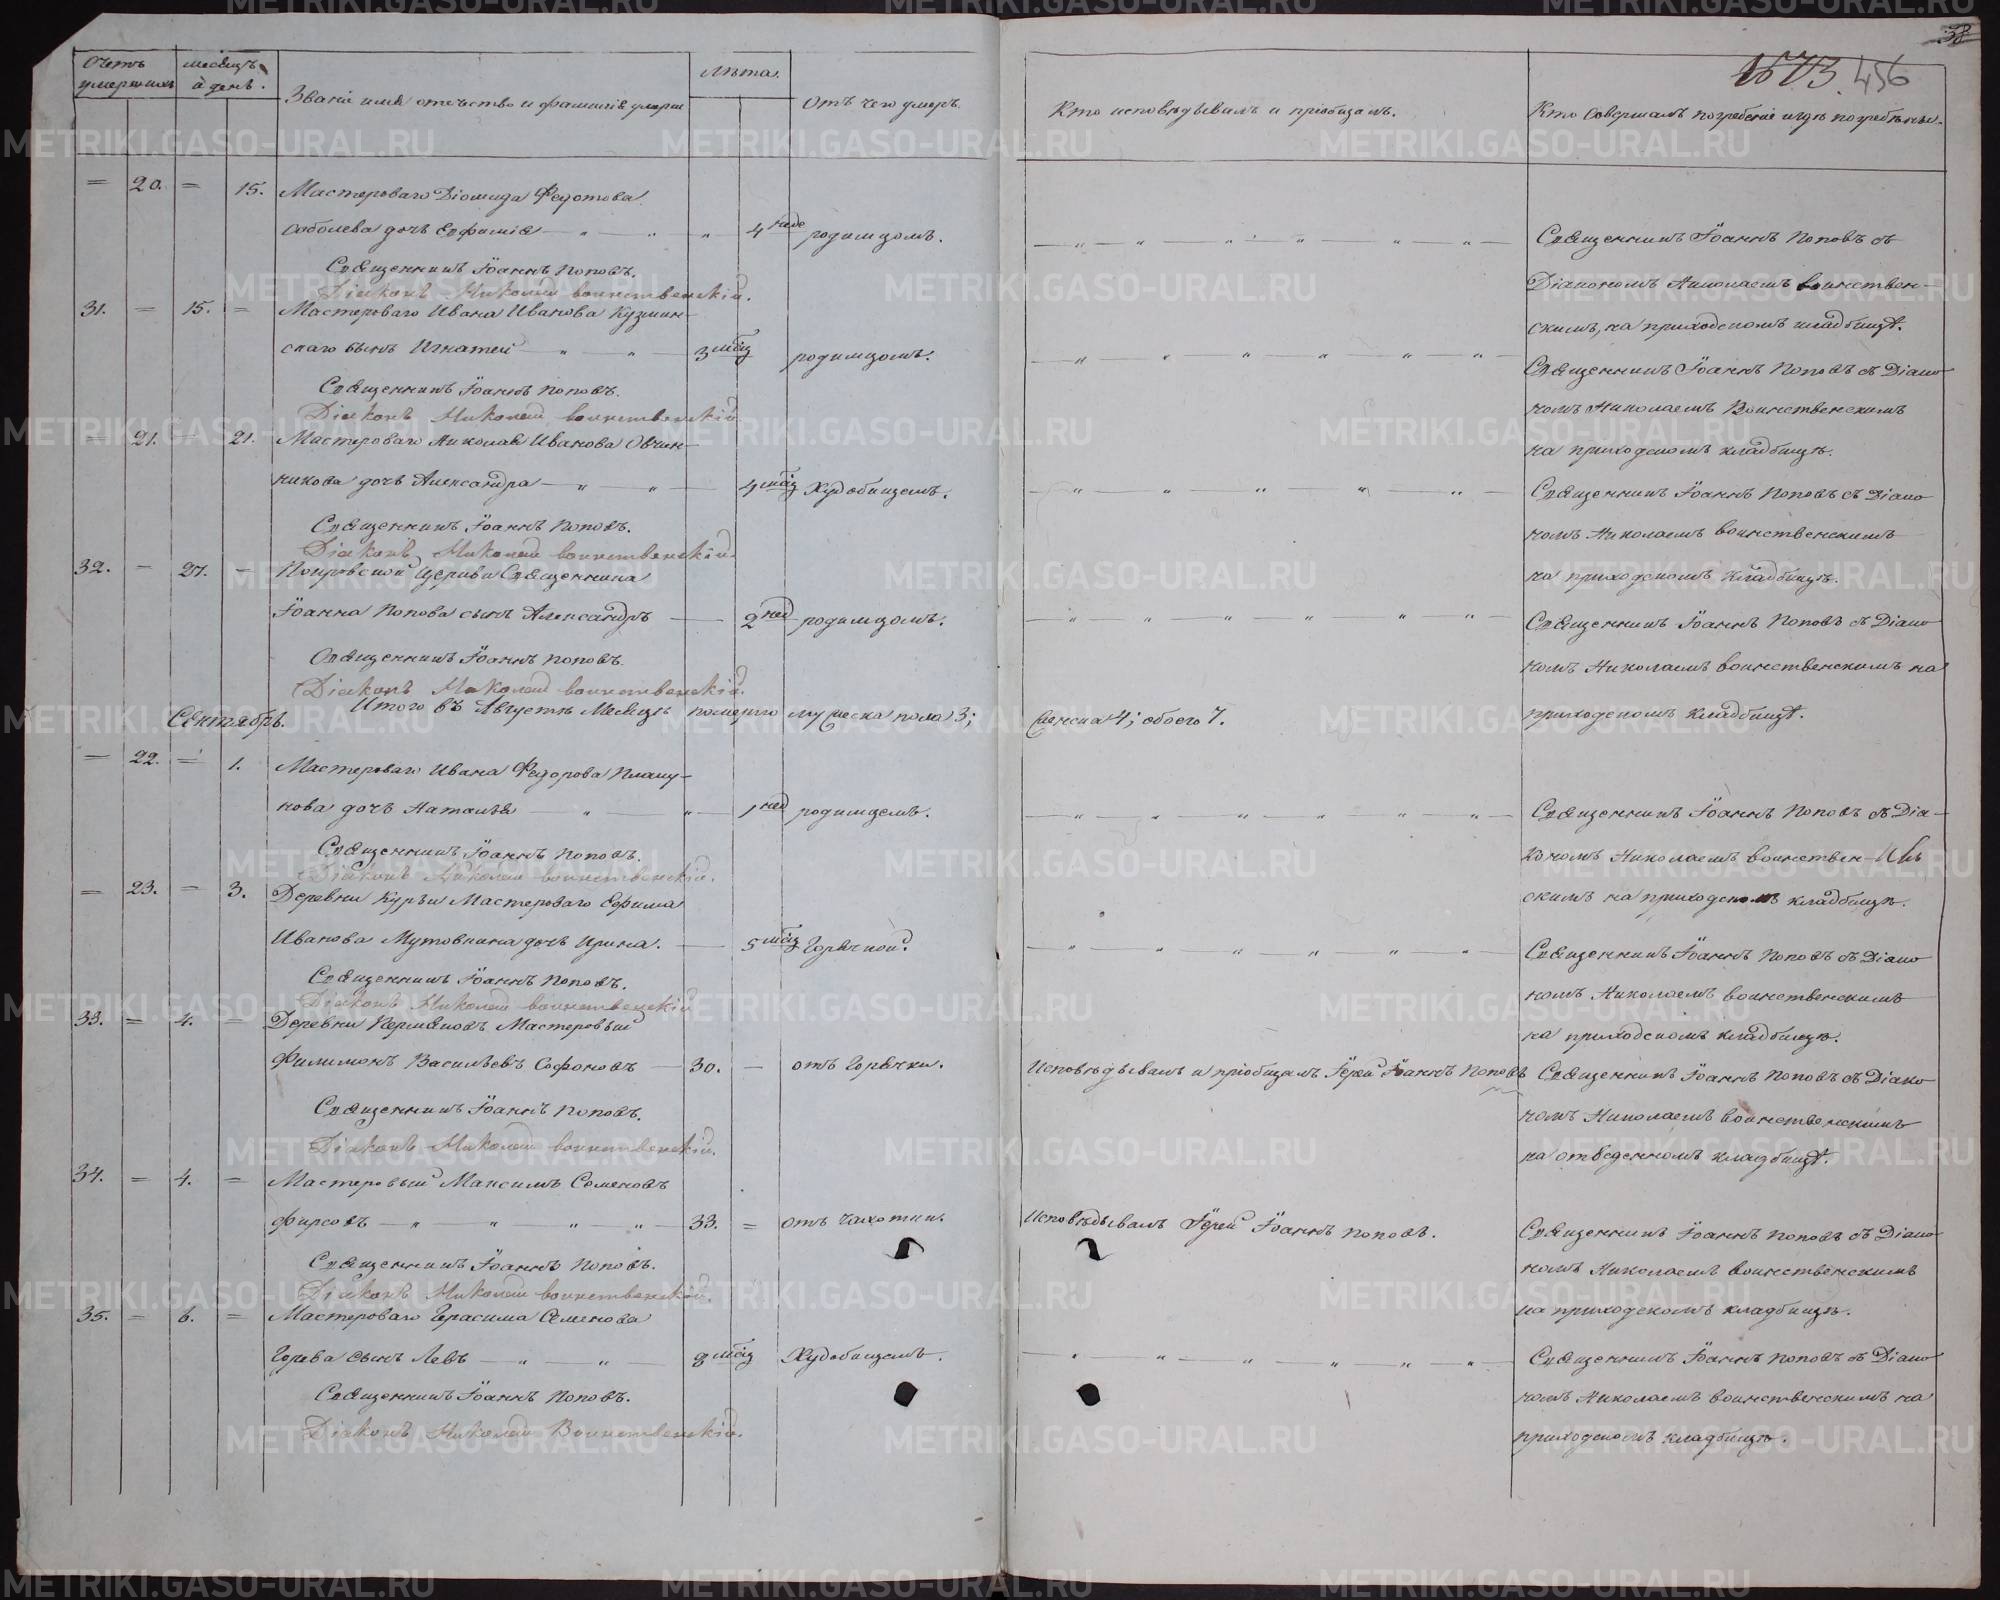 38
1673. 456
Счетъ умершихъ
Мѣсяцъ и день.
Званiе имя отчество и фамилiя умерш
Лѣта.
Отъ чего умеръ.
Кто исповѣдывалъ и прiобщалъ.
Кто совершалъ погребенiе и гдѣ погребены.
20. 15. Мастероваго Дiомида Федотова
Соболева дочь Евфимiя 4 неде родимцомъ.
Священникъ Iоаннъ Поповъ.
Дiаконъ Николай Воинственскiй.
Священникъ Iоаннъ Поповъ съ
Дiакономъ Николаемъ Воинствен-
скимъ, на приходскомъ кладбищѣ.
31. 15. Мастероваго Ивана Иванова Кузмин-
скаго сынъ Игнатей 3 мѣс родимцомъ.
Священникъ Iоаннъ Поповъ.
Дiаконъ Николай Воинственскiй.
Священникъ Iоаннъ Поповъ съ Дiако
номъ Николаемъ Воинственскимъ
на приходскомъ кладбищѣ.
21. 21. Мастероваго Николая Иванова Овчин-
никова дочь Александра 4 мѣс Худобищемъ.
Священникъ Iоаннъ Поповъ.
Дiаконъ Николай Воинственскiй.
Священникъ Iоаннъ Поповъ съ Дiако
номъ Николаемъ Воинственскимъ
на приходскомъ кладбищѣ.
32. 27. Покровской Церкви Священника
Iоанна Попова сынъ Александръ 2 нед родимцомъ.
Священникъ Iоаннъ Поповъ.
Дiаконъ Николай Воинственскiй.
Священникъ Iоаннъ Поповъ съ Дiако
номъ Николаемъ Воинственскимъ на
приходскомъ кладбищѣ.
Итого въ Августѣ Месяцѣ померло мужеска пола 3; женска 4; обоего 7.
Сентябрь.
22. 1. Мастероваго Ивана Федорова Плану-
нова дочь Наталья 1 нед родимцемъ.
Священникъ Iоаннъ Поповъ.
Дiаконъ Николай Воинственскiй.
Священникъ Iоаннъ Поповъ съ Дiа-
кономъ Николаемъ Воинствен-
скимъ на приходскомъ кладбищѣ.
23. 3. Деревни Курьи Мастероваго Ефима
Иванова Мутовкина дочь Ирина. 5 мѣс Горячкой.
Священникъ Iоаннъ Поповъ.
Дiаконъ Николай Воинственскiй
Священникъ Iоаннъ Поповъ съ Дiако
номъ Николаемъ Воинственскимъ
на приходскомъ кладбищѣ.
33. 4. Деревни Пермяковъ Мастеровый
Филимонъ Васильевъ Софоновъ 30. отъ Горячки.
Исповѣдывалъ и прiобщалъ Iерей Iоаннъ Поповъ
Священникъ Iоаннъ Поповъ.
Дiаконъ Николай Воинственскiй.
Священникъ Iоаннъ Поповъ съ Дiако
номъ Николаемъ Воинственскимъ
на отведенномъ кладбищѣ.
34. 4. Мастеровый Максимъ Семеновъ
Фирсовъ 33. отъ чахотки.
Исповѣдывалъ Iерей Iоаннъ Поповъ.
Священникъ Iоаннъ Поповъ.
Дiаконъ Николай Воинственскiй.
Священникъ Iоаннъ Поповъ съ Дiако
номъ Николаемъ Воинственскимъ
на приходскомъ кладбищѣ.
35. 6. Мастероваго Герасима Семенова
Горева сынъ Левъ 8 мѣс Худобищемъ.
Священникъ Iоаннъ Поповъ.
Дiаконъ Николай Воинственскiй.
Священникъ Iоаннъ Поповъ съ Дiако
номъ Николаемъ Воинственскимъ на
приходскомъ кладбищѣ.
METRIKI.GASO-URAL.RU